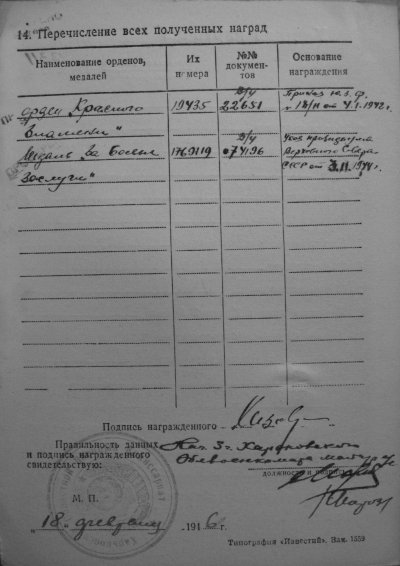 14. Перечисление всех полученных наград
Наименование орденов, медалей
Их номера
№№ документов
Основание награждения
орден „Красного 19435 в/у 22651 Приказ З. Ф.
Знамени" от 1942 г.
Медаль „за Боевые 1769119 в/у 074196 Указ президиума
заслуги" Верховного СССР от 3.11.1944г.
Подпись награжденного
Правильность данных
и подпись награжденного
свидетельствую:
Нач. 3ч. Харьковского
Облвоенкомата майор
должность и подпись
М. П.
„18" февраля 194 г.
Типография «Известий». Зак. 1559